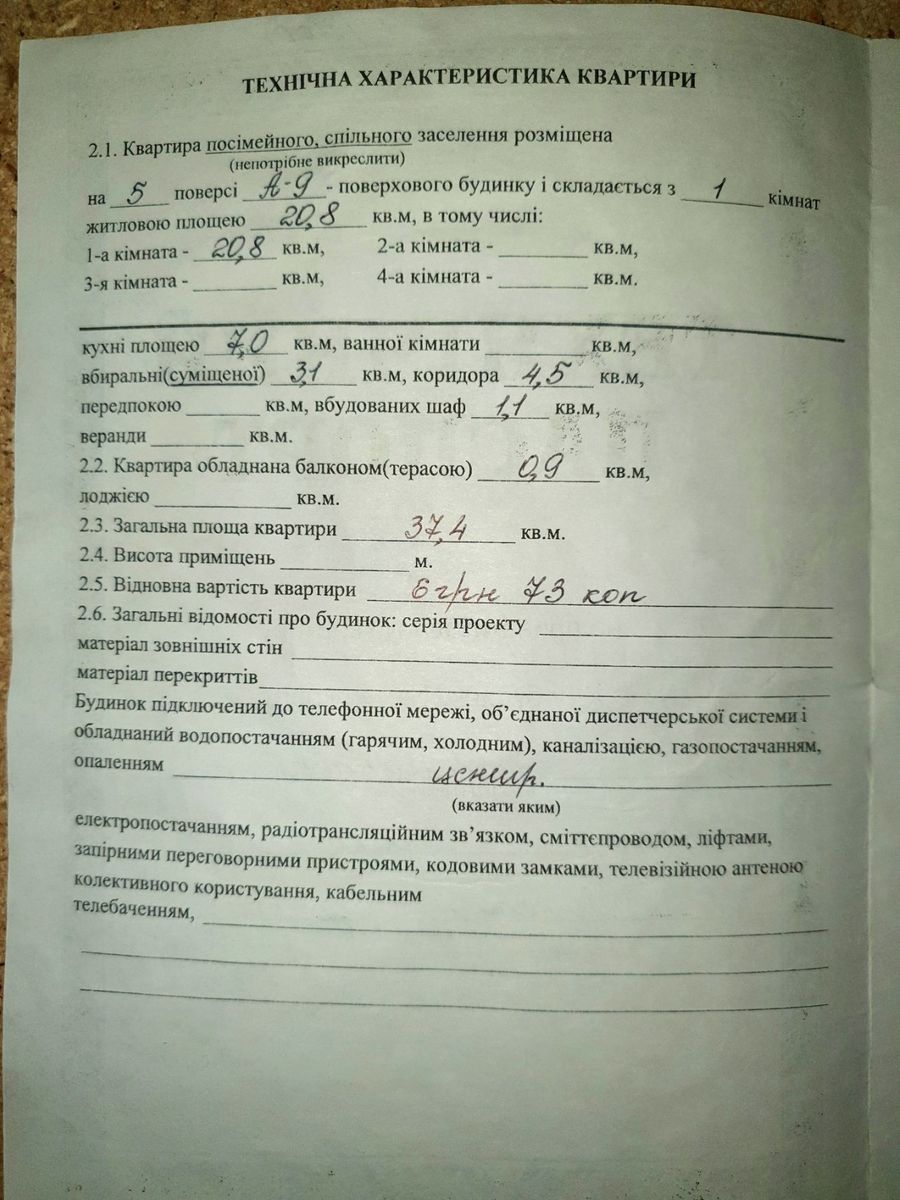 ТЕХНІЧНА ХАРАКТЕРИСТИКА КВАРТИРИ
2.1. Квартира посімейного, спільного заселення розміщена
(непотрібне викреслити)
на 5 поверсі А-9 - поверхового будинку і складається з 1 кімнат
житловою площею 20,8 кв.м, в тому числі:
1-а кімната - 20,8 кв.м, 2-а кімната - ________ кв.м,
3-я кімната - ________ кв.м, 4-а кімната - ________ кв.м.
кухні площею 7,0 кв.м, ванної кімнати ________ кв.м,
вбиральні(суміщеної) 3,1 кв.м, коридора 4,5 кв.м,
передпокою ________ кв.м, вбудованих шаф 1,1 кв.м,
веранди ________ кв.м.
2.2. Квартира обладнана балконом(терасою) 0,9 кв.м,
лоджією ________ кв.м.
2.3. Загальна площа квартири 37,4 кв.м.
2.4. Висота приміщень ________ м.
2.5. Відновна вартість квартири 6 грн 73 коп
2.6. Загальні відомості про будинок: серія проекту ________
матеріал зовнішніх стін ________
матеріал перекриттів ________
Будинок підключений до телефонної мережі, об’єднаної диспетчерської системи і
обладнаний водопостачанням (гарячим, холодним), каналізацією, газопостачанням,
опаленням центр.
(вказати яким)
електропостачанням, радіотрансляційним зв’язком, сміттєпроводом, ліфтами,
запірними переговорними пристроями, кодовими замками, телевізійною антеною
колективного користування, кабельним
телебаченням, ________